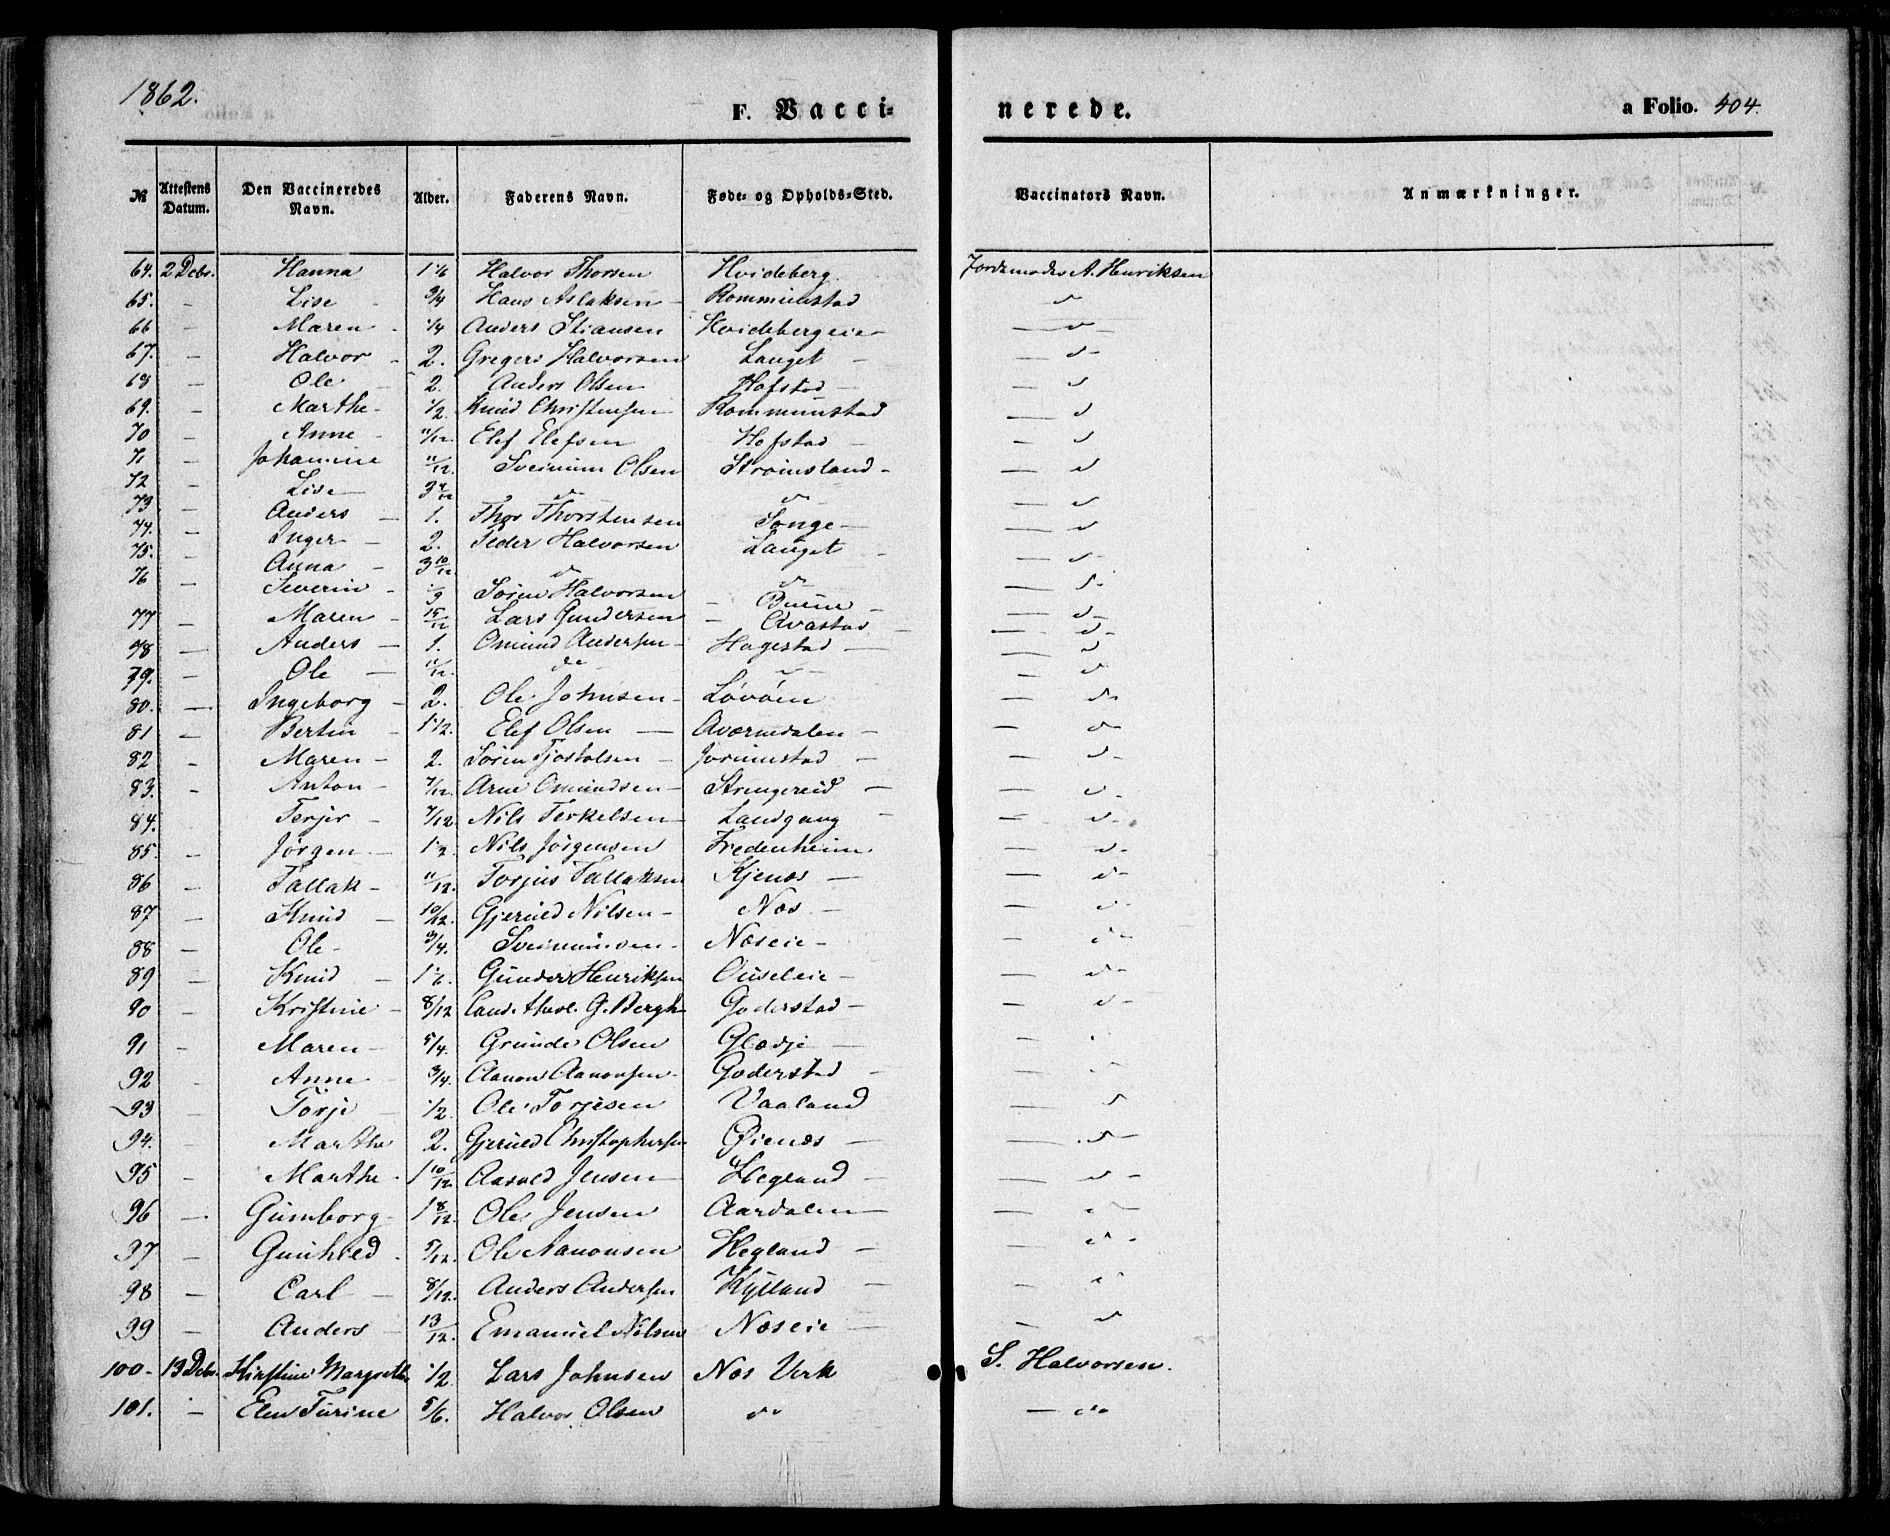 1862.
F. Vacci=
nerede.
a Folio. 404.
№ | Attestens Datum. | Den Vaccineredes Navn. | Alder. | Faderens Navn. | Føde= og Opholds=Sted. | Vaccinators Navn. | Anmærkninger.
64. 2 Debr. Hanna 1 1/6 Halvor Thorsen Hvideberg Jordemoder A. Henriksen
65. – Lise – 3/4 Hans Aslaksen – Rommunstad — "
66 – Maren – 1/4 Anders Stiansen Hvidebergeie – — "
67. – Halvor – 2. Gregers Halvorsen Langet – — "
68 – Ole – 2. Anders Olsen Hofstad – — "
69. – Marthe – 1/2 Knud Christensen Rommunstad — "
70 – Anne – 11/12 Elef Elefsen Hofstad – — "
71 – Johannine 11/12. Sveinum Olsen Strømsland – — "
72 – Lise – 3 4/12 do do — "
73 – Anders – 1. Thor Thorstensen Songe – — "
74. – Inger – 2. Peder Halvorsen Langet – — "
75. – Anna – 3 10/12 do do — "
76 – Severin – Søren Halvorsen – — "
77 – Maren – 15/12 Lars Gundersen – Qvastad – — "
78 – Anders – 1. Omund Andersen – Hagestad — — "
79. – Ole — 11/12. do do — "
80. – Ingeborg – 2. Ole Johnsen – Løvøen — "
81 – Bertin – 1 1/2. Elef Olsen — Aværnedalen – — "
82 – Maren – 2. Søren Tjostolsen – Jorunstad – — "
83. – Anton – 7/12. Arne Omundsen – Strengereid – — "
84. – Terjer – 7/12 Nils Terkelsen – Landgang – — "
85. – Jørgen – 1 1/2. Nils Jørgensen Fredenheim — "
86 – Tallak – 11/12. Torjus Tallaksen Kjenæs – — "
87 – Knud – 10/12. Gjeruld Nilsen – Næs – — "
88 – Ole – 3/4. Næseie – — "
89 – Knud – 1 1/6. Gunder Henriksen Ouseleie – — "
90 – Kristine – 8/12 Cand. theol. G. Bergh Goderstad – — "
91 – Maren – 5/4. Grunde Olsen Glædje – — "
92 – Anne – 3/4. Aanon Aanonsen – Goderstad – — "
93 – Torje – 1/2. Ole Torjesen Vaaland — "
94. – Marthe 2. Gjeruld Christophersen Øienæs – — "
95 – Marthe – 1 10/12. Aasuld Jensen – Hegland – — "
96 – Gumborg – 1 8/12. Ole Jensen Aardalen – — "
97 – Gunhild – 5/12. Ole Aanonsen Hegland – — "
98 – Carl – 8/12. Anders Andersen Kylland – — "
99 – Anders – 13/12. Emanuel Nilsen Næseie – — "
100. 13 Debr. Kirstine Margrethe 1/2 Lars Johnsen Næs Verk S. Halvorsen.
101. – Elen Turine 5/6. Halvor Olsen do — do